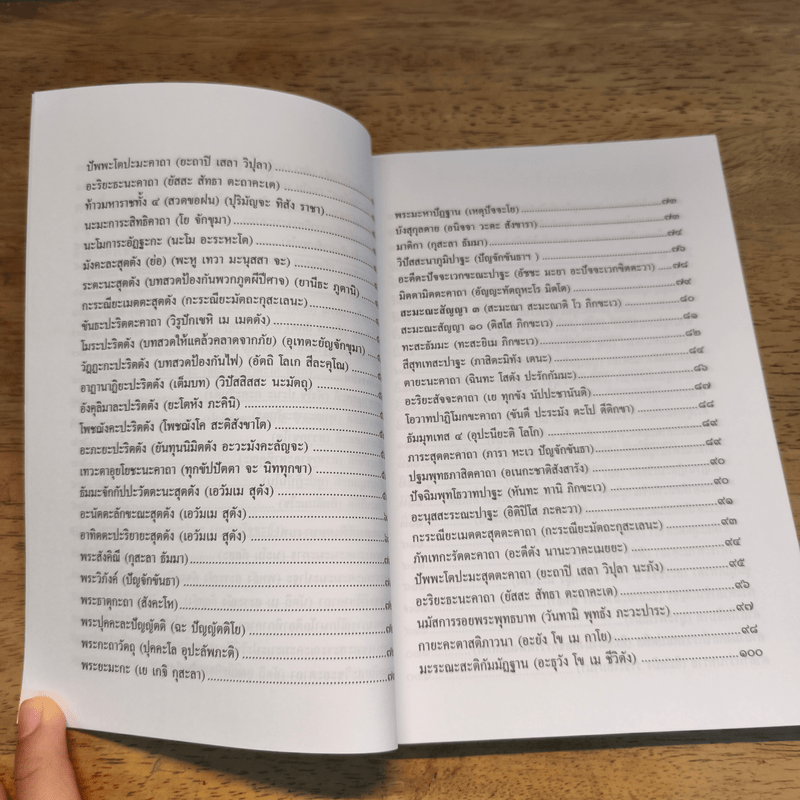 ปัพพะโตปะมะคาถา (ยะถาปิ เสลา วิปุลา)
อะริยะธะนะคาถา (ยัสสะ สัทธา ตะถาคะเต)
ท้าวมหาราชทั้ง ๔ (สวดขอฝน) (ปุริมัญจะ ทิสัง ราชา)
นะมะการะสิทธิคาถา (โย จักขุมา)
นะโมการะอัฏฐะกะ (นะโม อะระหะโต)
มังคะละสุตตัง (ย่อ) (พะหู เทวา มะนุสสา จะ)
ระตะนะสุตตัง (บทสวดป้องกันพวกภูตผีปีศาจ) (ยานีธะ ภูตานิ)
กะระณียะเมตตะสุตตัง (กะระณียะมัตถะกุสะเลนะ)
ขันธะปะริตตะคาถา (วิรูปักเขหิ เม เมตตัง)
โมระปะริตตัง (บทสวดให้แคล้วคลาดจากภัย) (อุเทตะยัญจักขุมา)
วัฏฏะกะปะริตตัง (บทสวดป้องกันไฟ) (อัตถิ โลเก สีละคุโณ)
อาฏานาฏิยะปะริตตัง (เต็มบท) (วิปัสสิสสะ นะมัตถุ)
อังคุลิมาละปะริตตัง (ยะโตหัง ภะคินิ)
โพชฌังคะปะริตตัง (โพชฌังโค สะติสังขาโต)
อะภะยะปะริตตัง (ยันทุนนิมิตตัง อะวะมังคะลัญจะ)
เทวะตาอุยโยชะนะคาถา (ทุกขัปปัตตา จะ นิททุกขา)
ธัมมะจักกัปปะวัตตะนะสุตตัง (เอวัมเม สุตัง)
อะนัตตะลักขะณะสุตตัง (เอวัมเม สุตัง)
อาทิตตะปะริยายะสุตตัง (เอวัมเม สุตัง)
พระสังคิณี (กุสะลา ธัมมา)
พระวิภังค์ (ปัญจักขันธา)
พระธาตุกะถา (สังคะโห)
พระปุคคะละปัญญัตติ (ฉะ ปัญญัตติโย)
พระกะถาวัตถุ (ปุคคะโล อุปะลัพภะติ)
พระยะมะกะ (เย เกจิ กุสะลา)
พระมะหาปัฏฐาน (เหตุปัจจะโย) ๗๓
บังสุกุลตาย (อนิจจา วะตะ สังขารา) ๗๓
มาติกา (กุสะลา ธัมมา) ๗๔
วิปัสสะนาภูมิปาฐะ (ปัญจักขันธาฯ) ๗๖
อะตีตะปัจจะเวกขะณะปาฐะ (อัชชะ มะยา อะปัจจะเวกขิตตะวา) ๗๘
มิตตามิตตะคาถา (อัญญะทัตถุหะโร มิตโต) ๗๙
สะมะณะสัญญา ๓ (สะมะณา สะมะณาติ โว ภิกขะเว) ๘๐
สะมะณะสัญญา ๑๐ (ติสโส ภิกขะเว) ๘๑
ทะสะธัมมะ (ทะสะยิเม ภิกขะเว) ๘๒
สีสุทเทสะปาฐะ (ภาสิตะมิทัง เตนะ) ๘๔
ตายะนะคาถา (ฉินทะ โสตัง ปะรักกัมมะ) ๘๖
อะริยะสัจจะคาถา (เย ทุกขัง นัปปะชานันติ) ๘๗
โอวาทปาฏิโมกขะคาถา (ขันตี ปะระมัง ตะโป ตีติกขา) ๘๘
ธัมมุทเทส ๔ (อุปะนียะติ โลโก) ๘๙
ภาระสุตตะคาถา (ภารา หะเว ปัญจักขันธา) ๘๙
ปฐมพุทธภาสิตคาถา (อเนกะชาติสังสารัง) ๙๐
ปัจฉิมพุทโธวาทปาฐะ (หันทะ ทานิ ภิกขะเว) ๙๐
อะนุสสะระณะปาฐะ (อิติปิโส ภะคะวา) ๙๑
กะระณียะเมตตะสุตตะคาถา (กะระณียะมัตถะกุสะเลนะ) ๙๓
ภัทเทกะรัตตะคาถา (อะตีตัง นานะวาคะเมยยะ) ๙๔
ปัพพะโตปะมะสุตตะคาถา (ยะถาปิ เสลา วิปุลา นะภัง) ๙๕
อะริยะธะนะคาถา (ยัสสะ สัทธา ตะถาคะเต) ๙๖
นมัสการรอยพระพุทธบาท (วันทามิ พุทธัง ภะวะปาระ) ๙๗
กายะคะตาสติภาวนา (อะยัง โข เม กาโย) ๙๘
มะระณะสะติกัมมัฏฐาน (อะธุวัง โข เม ชีวิตัง) ๑๐๐